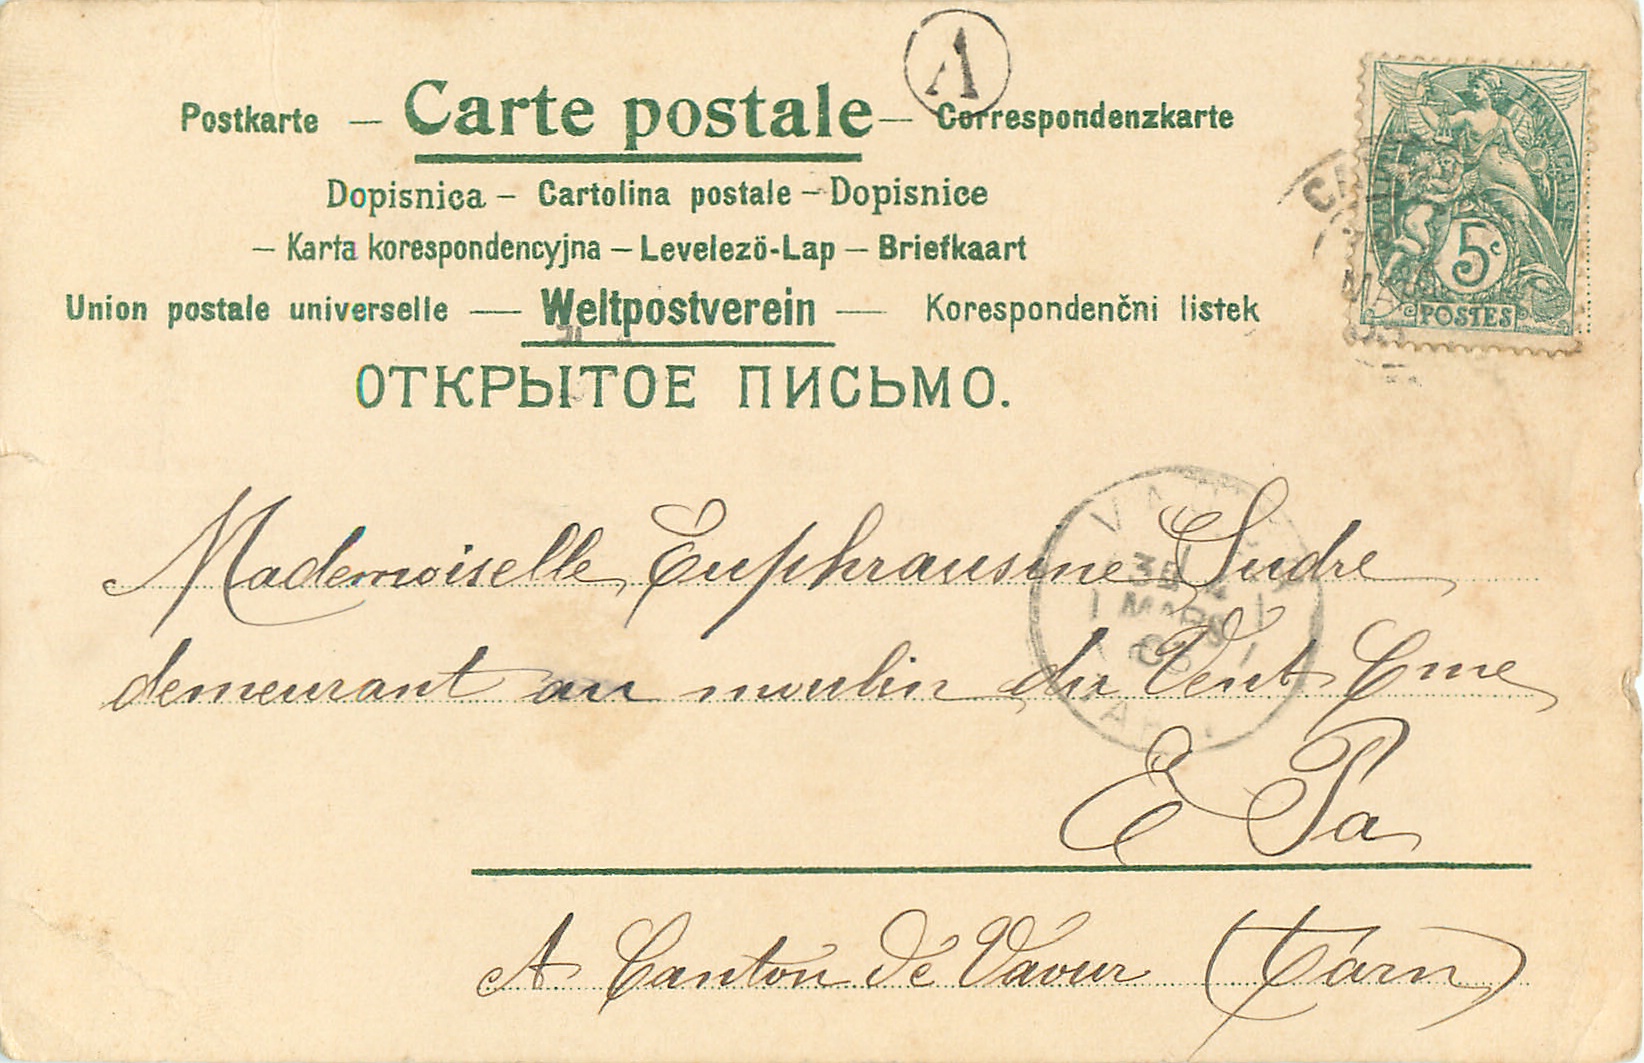 A
Postkarte – Carte postale – Correspondenzkarte
Dopisnica – Cartolina postale – Dopisnice
– Karta korespondencyjna – Levelezö-Lap – Briefkaart
Union postale universelle — Weltpostverein — Korespondenční listek
ОТКРЫТОЕ ПИСЬМО.
5c
POSTES
MARS
Mademoiselle Euphrausine Sudre
demeurant au moulin du Vent Cme
E Pa
A Canton de Vavur (Tarn)